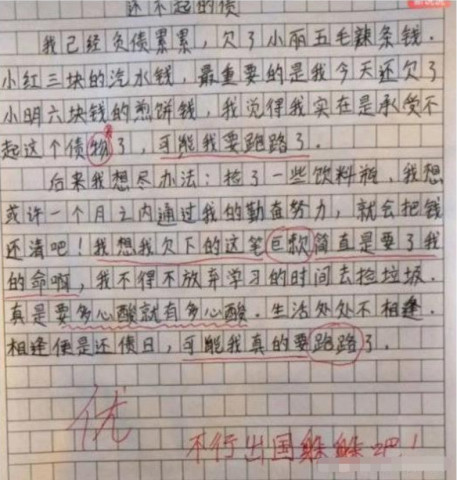 还不起的债
我已经负债累累，欠了小丽五毛辣条钱.
小红三块的汽水钱，最重要的是我今天还欠了
小明六块钱的煎饼钱，我觉得我实在是承受不
起这个债物了，可能我要跑路了.
后来我想尽办法：捡了一些饮料瓶，我想
或许一个月之内通过我的勤奋努力，就会把钱
还清吧！我想我欠下的这笔巨款简直是要了我
的命啊，我不得不放弃学习的时间去捡垃圾.
真是要多心酸就有多心酸.生活处处不相逢.
相逢便是还债日，可能我真的要跑路了.
优
不行出国躲躲吧！